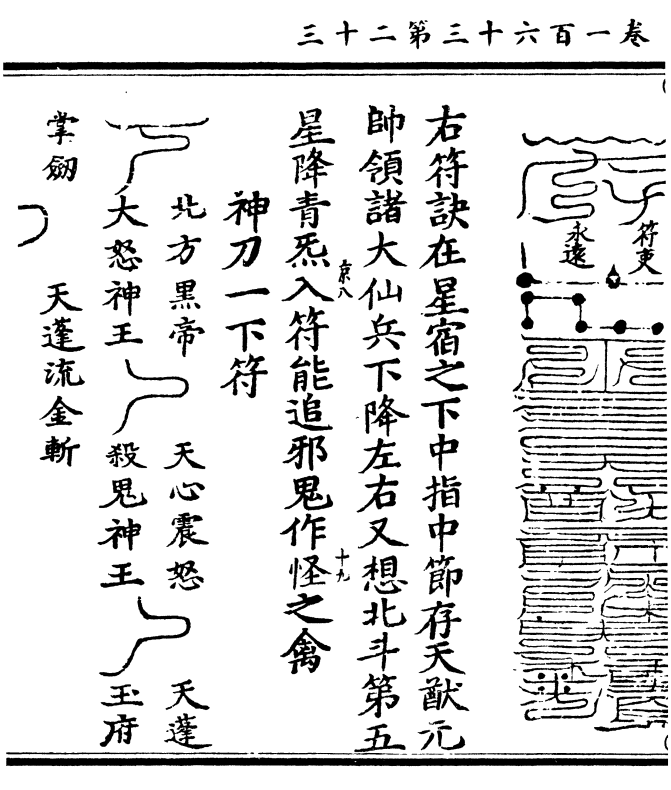 卷一百六十三第二十三
符吏
永遠
右符訣在星宿之下中指中節存天猷元
帥領諸大仙兵下降左右又想北斗第五
京八
十九
星降青炁入符能追邪鬼作怪之禽
神刀一下符
北方黑帝 天心震怒 天蓬
大怒神王 殺鬼神王 玉府
掌劒 天蓬流金斬